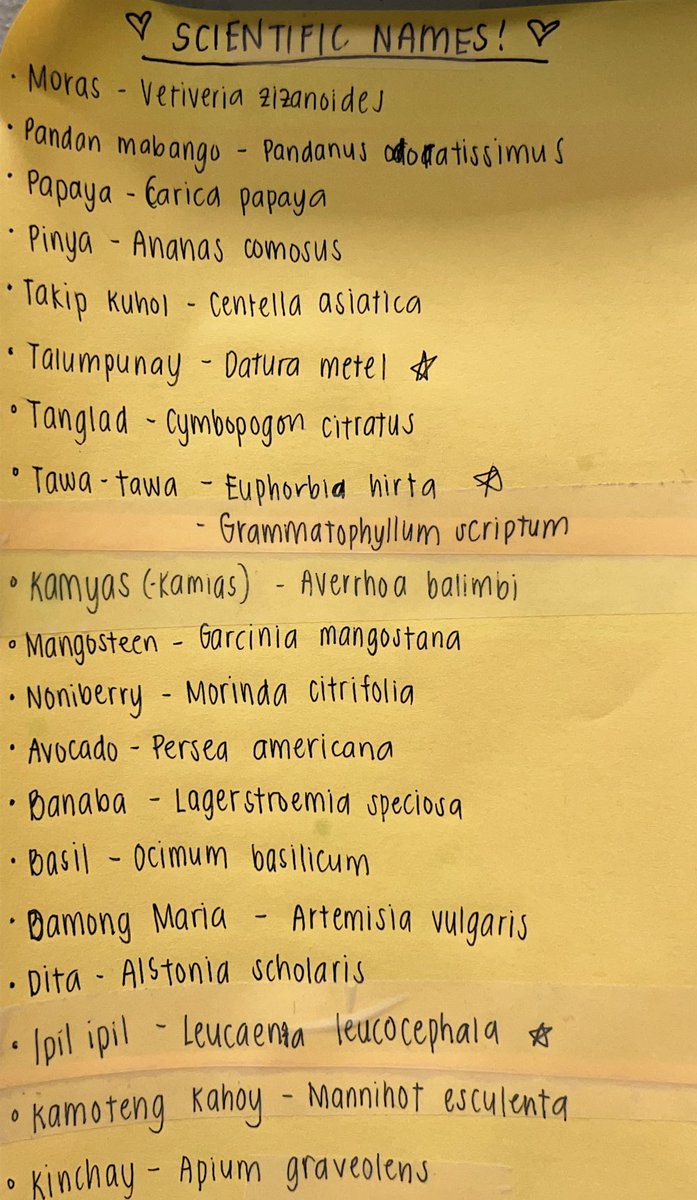 SCIENTIFIC NAMES!
• Moras - Vetiveria zizanoides
• Pandan mabango - Pandanus odoratissimus
• Papaya - Carica papaya
• Pinya - Ananas comosus
• Takip kuhol - Centella asiatica
• Talumpunay - Datura metel ☆
• Tanglad - Cymbopogon citratus
• Tawa-tawa - Euphorbia hirta ☆
- Grammatophyllum scriptum
• Kamyas (-Kamias) - Averrhoa balimbi
• Mangosteen - Garcinia mangostana
• Noniberry - Morinda citrifolia
• Avocado - Persea americana
• Banaba - Lagerstroemia speciosa
• Basil - Ocimum basilicum
• Damong Maria - Artemisia vulgaris
• Dita - Alstonia scholaris
• Ipil ipil - Leucaenia leucocephala ☆
• Kamoteng kahoy - Mannihot esculenta
• Kinchay - Apium graveolens